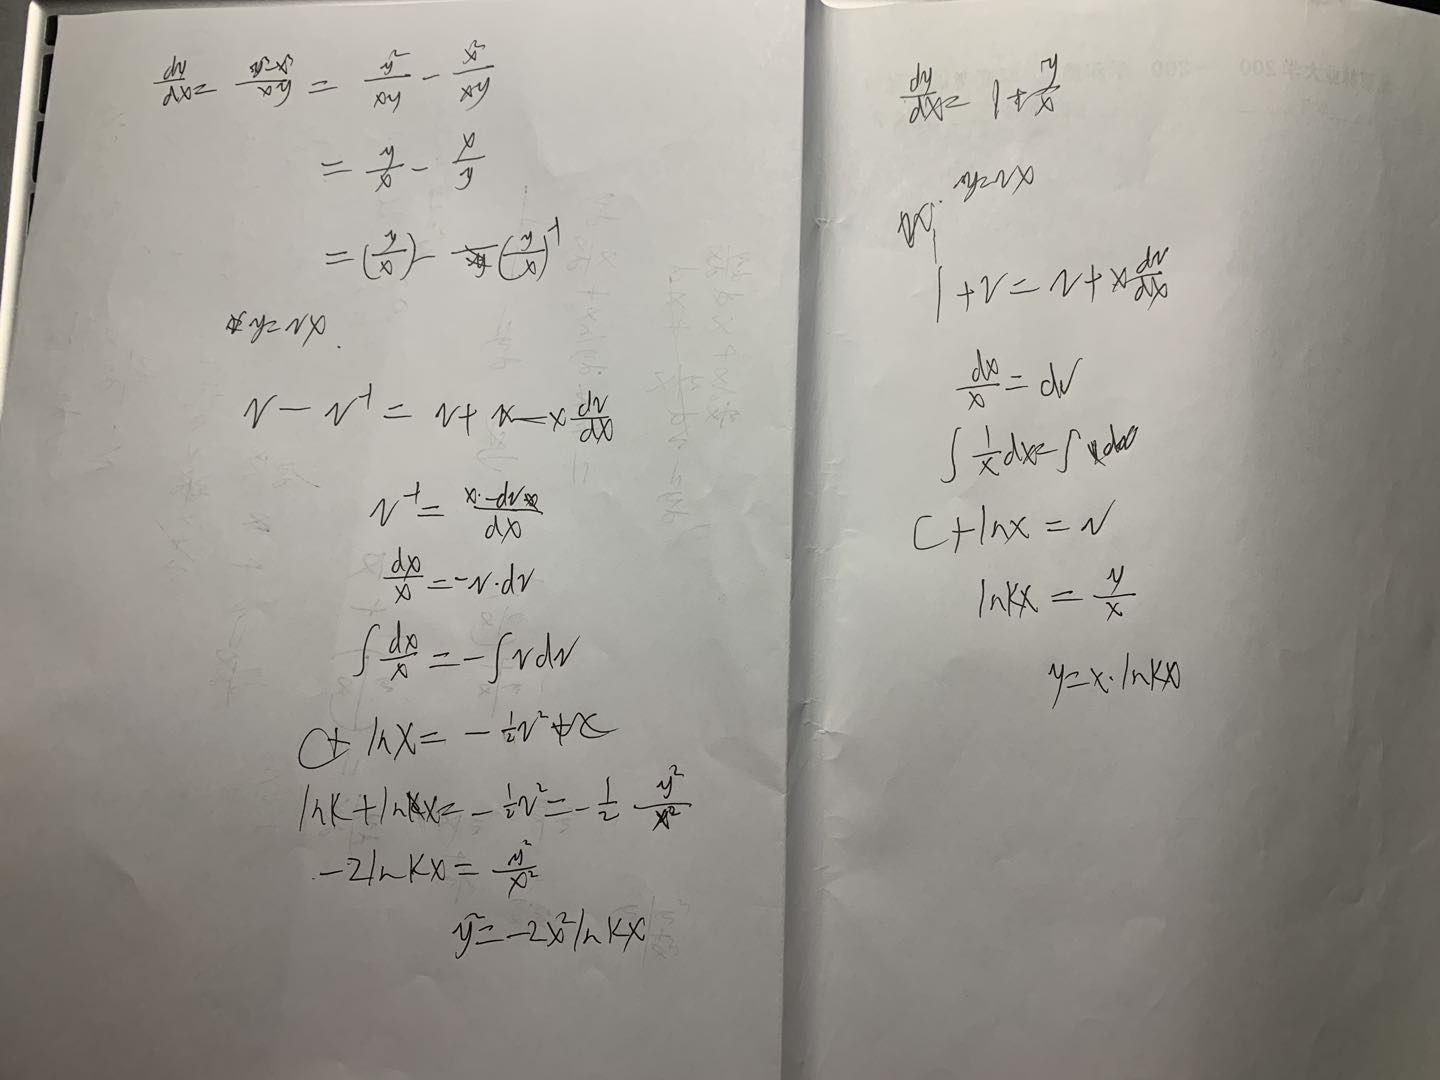 dy/dx = (y²-x²)/(xy) = y²/(xy) - x²/(xy)
= y/x - x/y
= (y/x) - (y/x)⁻¹
y=vx.
v - v⁻¹ = v + x dv/dx
v⁻¹ = x·dv/dx
dx/x = -v·dv
∫ dx/x = -∫ v dv
C+ ln x = -½v²
ln K + ln x = -½v² = -½ y²/x²
-2 ln Kx = y²/x²
y² = -2x² ln Kx
dy/dx = 1 + y/x
y=vx
1+v = v + x dv/dx
dx/x = dv
∫ 1/x dx = ∫ 1 dv
C + ln x = v
ln Kx = y/x
y = x · ln Kx